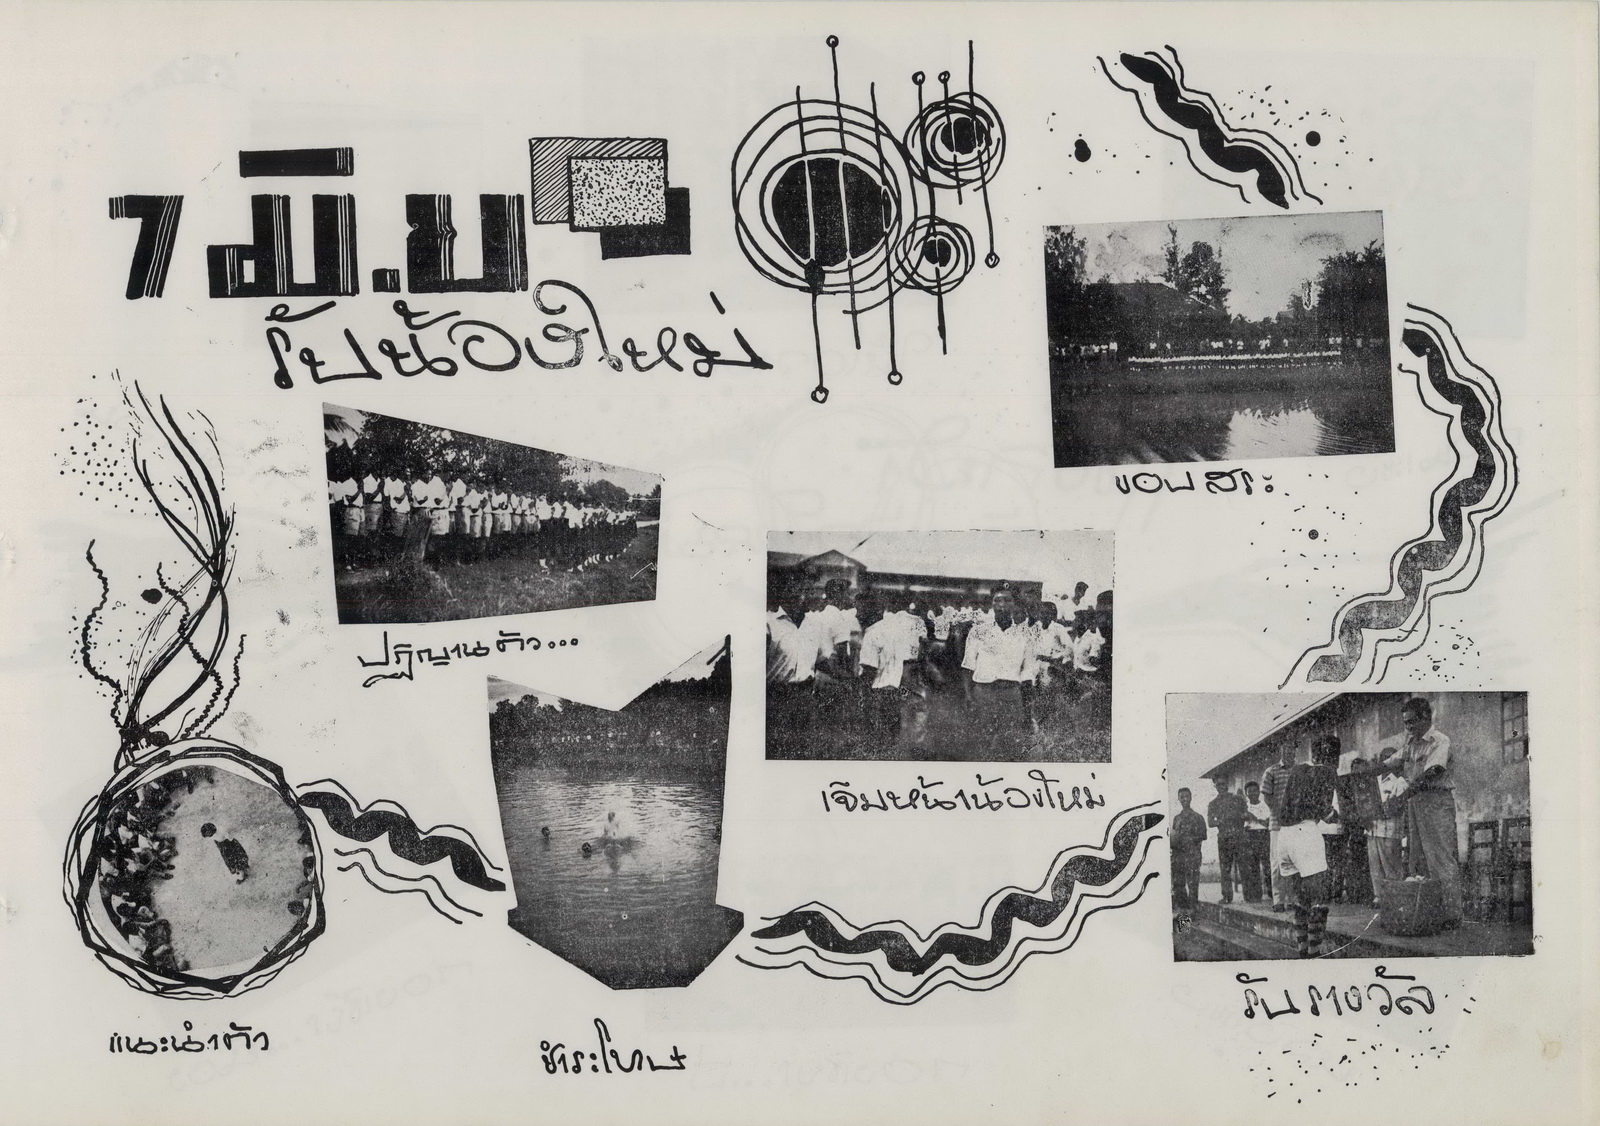 7 มิ.ย
รับน้องใหม่
ขอบสระ
ปฏิญานตัว...
เจิมหน้าน้องใหม่
รับรางวัล
แนะนำตัว
ชำระโทษ